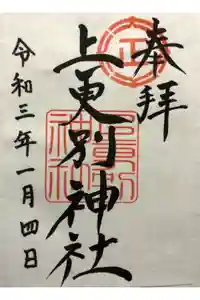 奉拝
上更別神社
令和三年一月四日